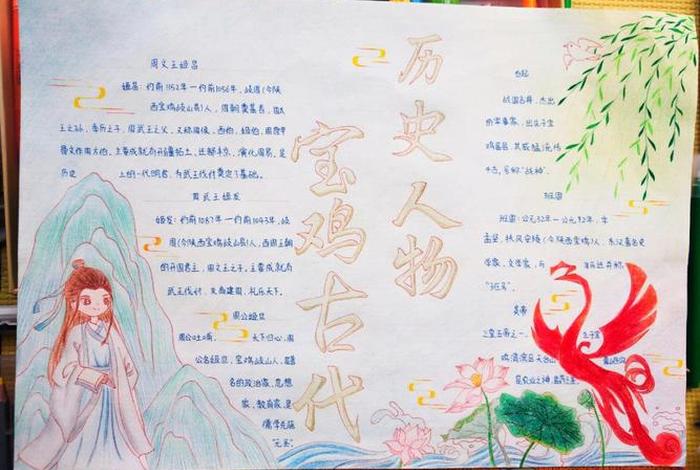 宝鸡古代
历史人物
周文王姬昌
姬昌：约前1152年一约前1056年，岐周(今陕
西宝鸡岐山县)人，周朝奠基者，周太
王之孙，季历之子，周武王之父，又称周侯，西伯，姬伯，周原甲
骨文作周方伯。主要成就有开疆拓土，迁都丰京，演化周易，是
历史 上的一代明君，为武王伐纣奠定了基础。
周武王姬发
姬发：约前1087年一约前1043年，岐
周(今陕西宝鸡岐山县)人，西周王朝
的开国君主，周文王之子。主要成就有
武王伐纣，灭商建周，礼乐天下。
周公姬旦
周公吐哺， 天下归心，周
公名姬旦，宝鸡岐山人，是著
名的政治家，思想
家，教育家，是
儒学先驱
"元圣"
白起
战国名将，杰出
的军事家，出生于宝
鸡眉县，其威猛
号称"战神"。
班固
班固：公元32年一公元92年，字
孟坚，扶风安陵(今陕西宝鸡)人，东汉著名史
学家，文学家，与
"班马"。
炎帝
上古五帝之一，
是农业之神